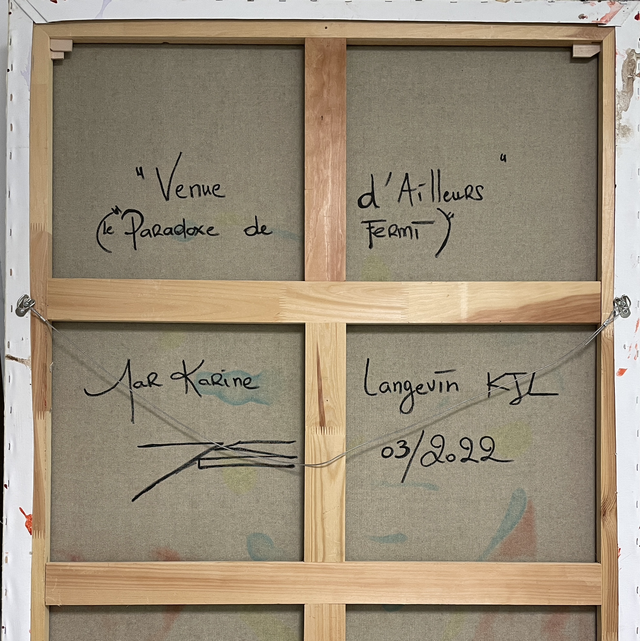 "Venue d'Ailleurs"
(le "Paradoxe de Fermi")
Par Karine Langevin KJL
03/2022